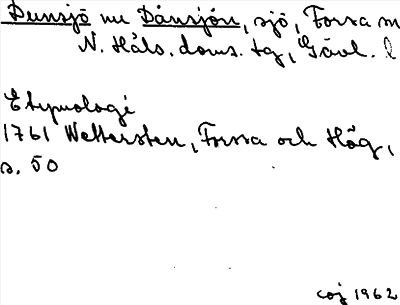 Dunsjö nu Dånsjön, sjö, Forsa sn
N. Häls. doms. tg, Gävl. l
Etymologi
1761 Wettersten, Forssa och Hög,
s. 50
coj 1962